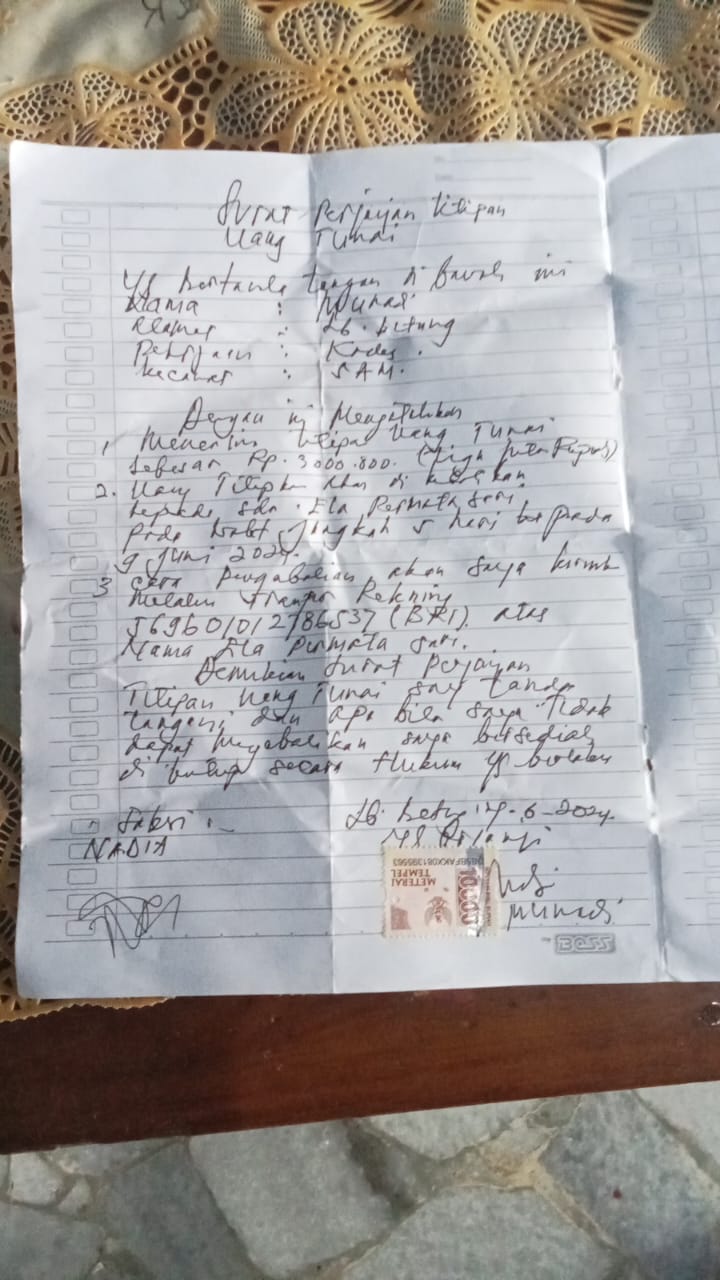 Surat Perjanjian titipan
Uang Tunai
Yg bertanda tangan di bawah ini
Nama : Munadi
Alamat : Lb. betung
Pekerjaan : Kades.
Kecamat : SAM.
Dengan ini Mengatakan
1, Menerima titipan Uang Tunai
Sebesar Rp. 3000.800. (Tiga juta Rupiah)
2. Uang Titipkan akan di
kepada Sdr. Ela Permata Sari
pada 5 hari
9 Juni 2024.
3 cara pengabalian akan saya kirim
Melalui Tranpor Rekning
569601012786537 (BRI). atas
Nama Ela Permata Sari.
Demikian Surat Perjanjian
Titipan Uang Tunai saya tanda
tangani dan apa bila saya tidak
dapat Mengabalikan saya bersedia
di secara Hukum yg berlaku
Saksi Lb. betung 4-6-2024.
NADIA
METERAI
TEMPEL
10000
D85BFAKX081395563
Munadi
BOSS